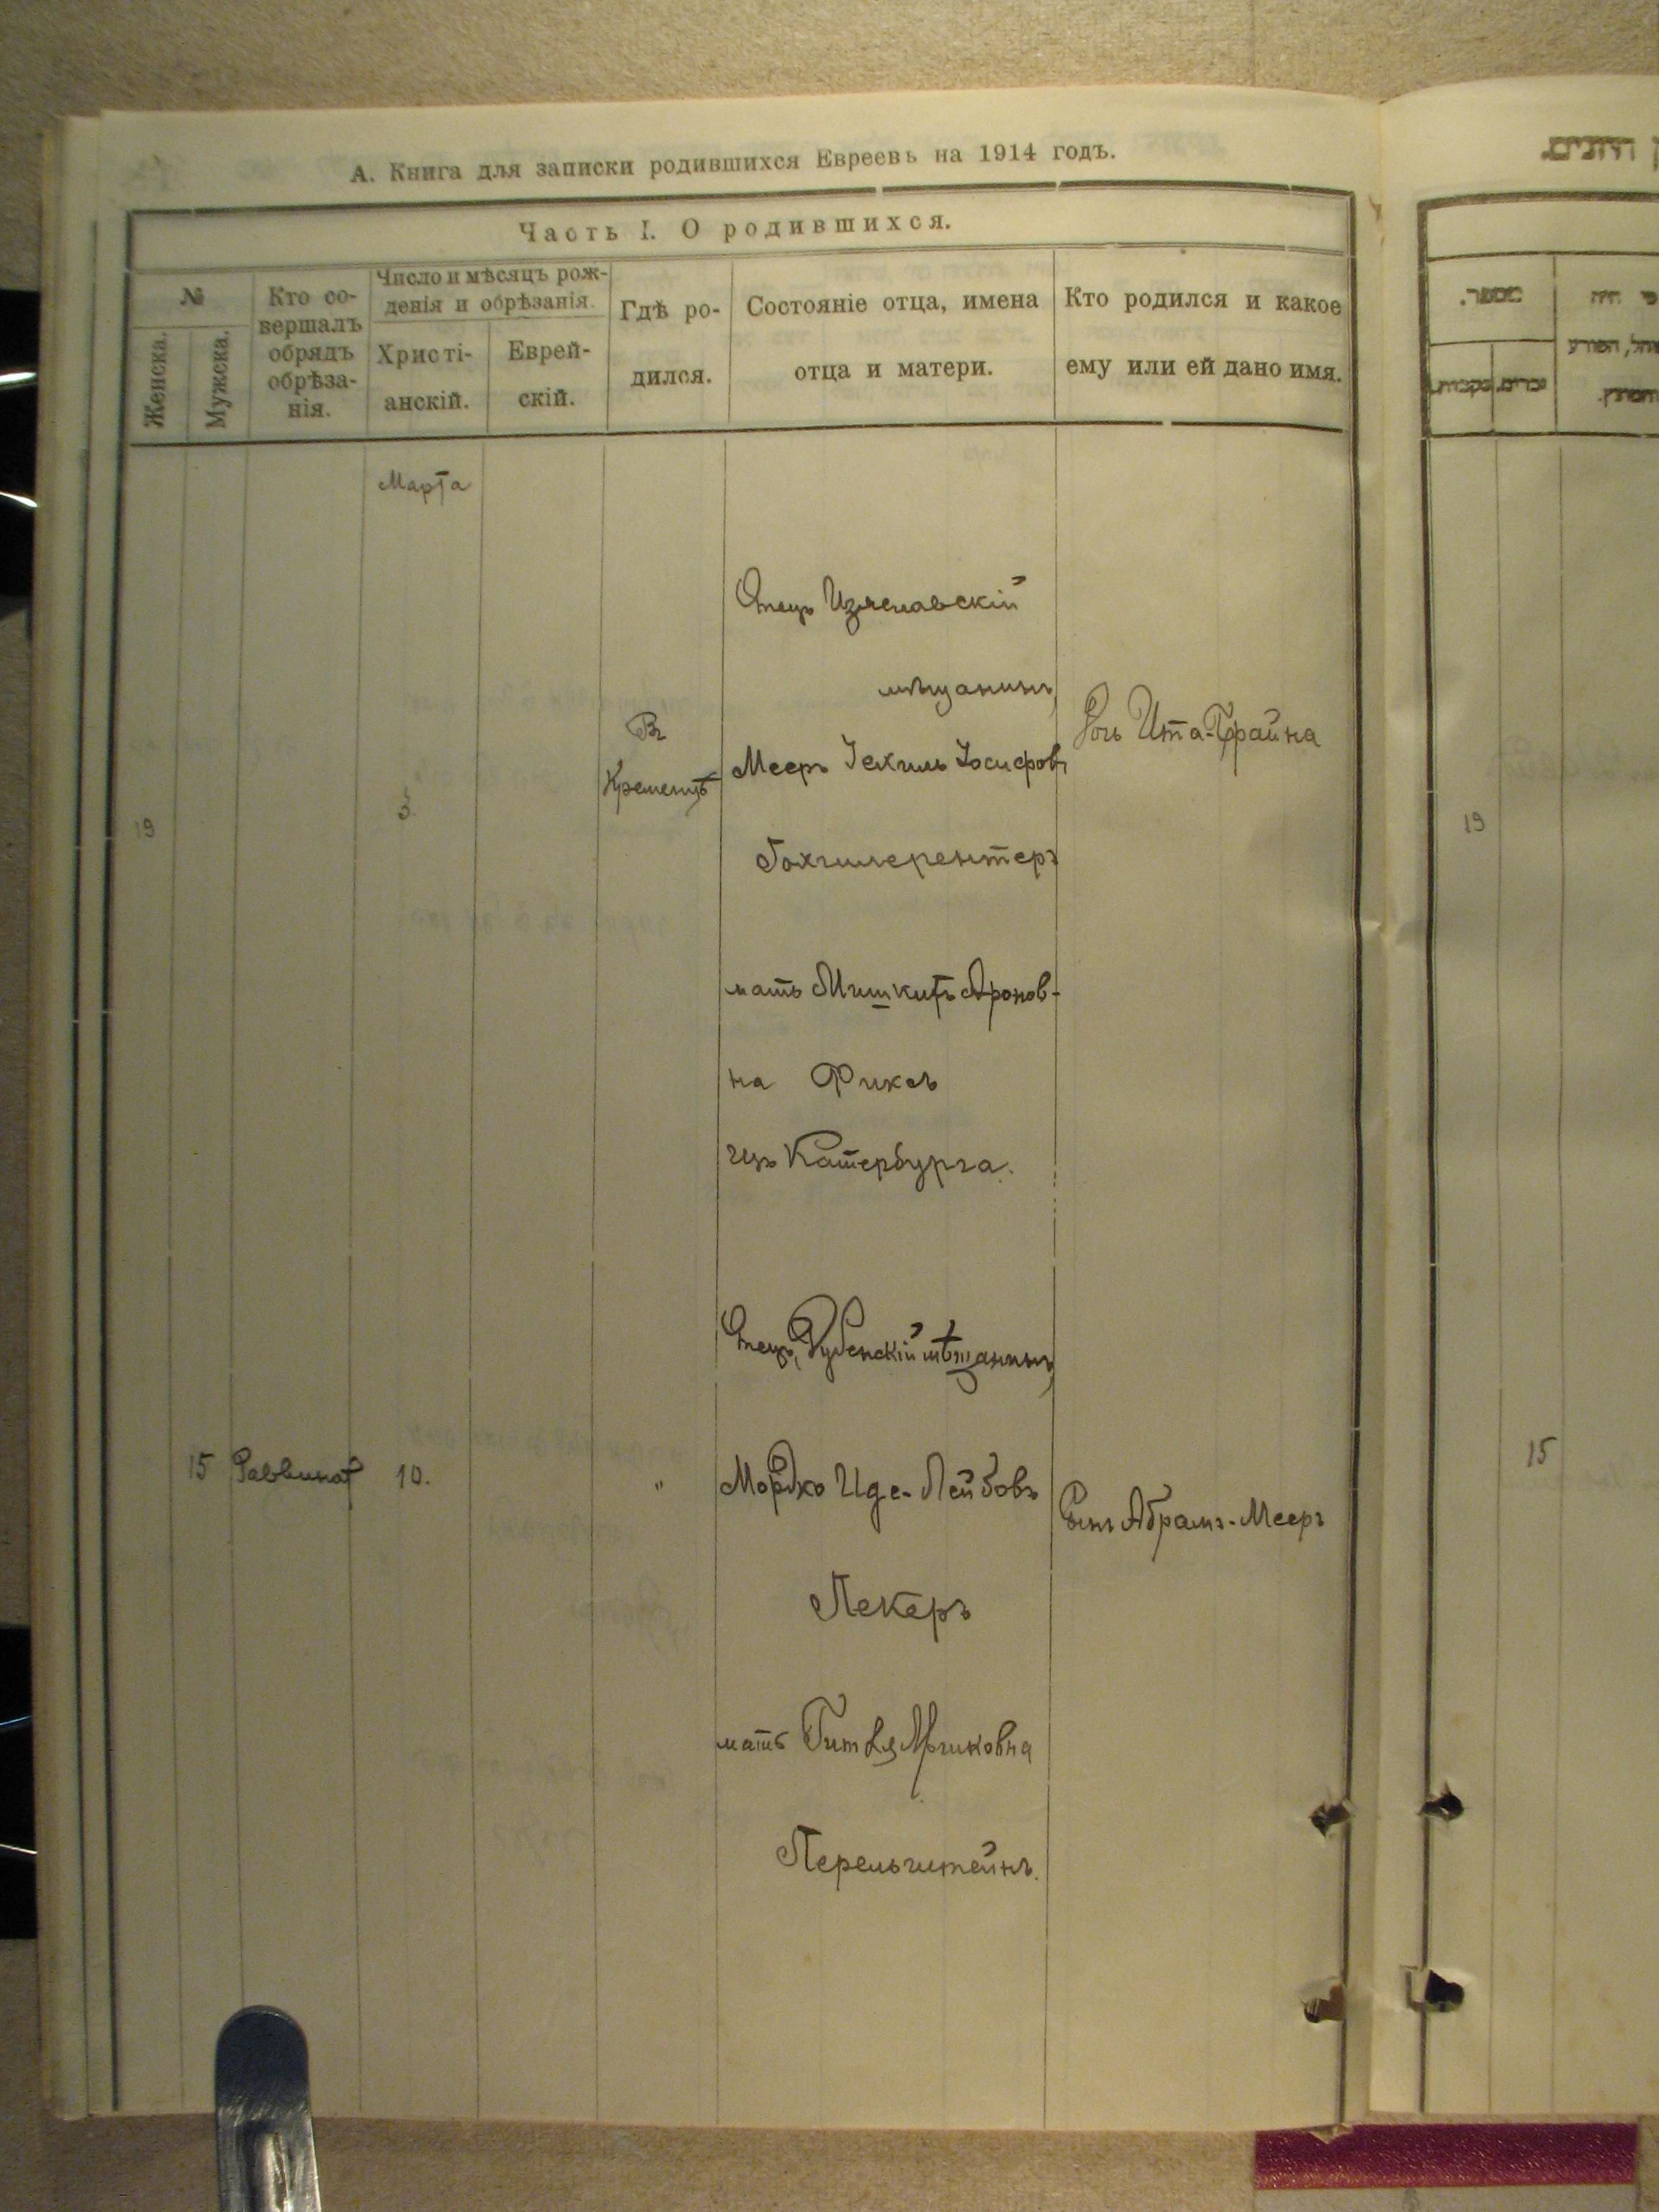 А. Книга для записки родившихся Евреевъ на 1914 годъ.
Часть I. О родившихся.
№
Женска.
Мужска.
Кто со-
вершалъ
обрядъ
обрѣза-
нія.
Число и мѣсяцъ рож-
денія и обрѣзанія.
Христі-
анскій.
Еврей-
скій.
Гдѣ ро-
дился.
Состояніе отца, имена
отца и матери.
Кто родился и какое
ему или ей дано имя.
Марта
19
3.
Въ
Кременцѣ
Отецъ Изяславскій
мѣщанинъ
Мееръ Іехиль Іосифовъ
Гохгилерентеръ
мать Аронов-
на Фиксъ
изъ Катербурга.
Дочь Ита-Брайна
15
Раввинат
10.
"
Отецъ, Дубенскій мѣщанинъ
Мордко Иде-Лейбовъ
Пекеръ
мать Гитля Ициковна
Перельштейнъ.
Сынъ Абрамъ-Мееръ
19
15
מספר.
זכרים.
נקבות.